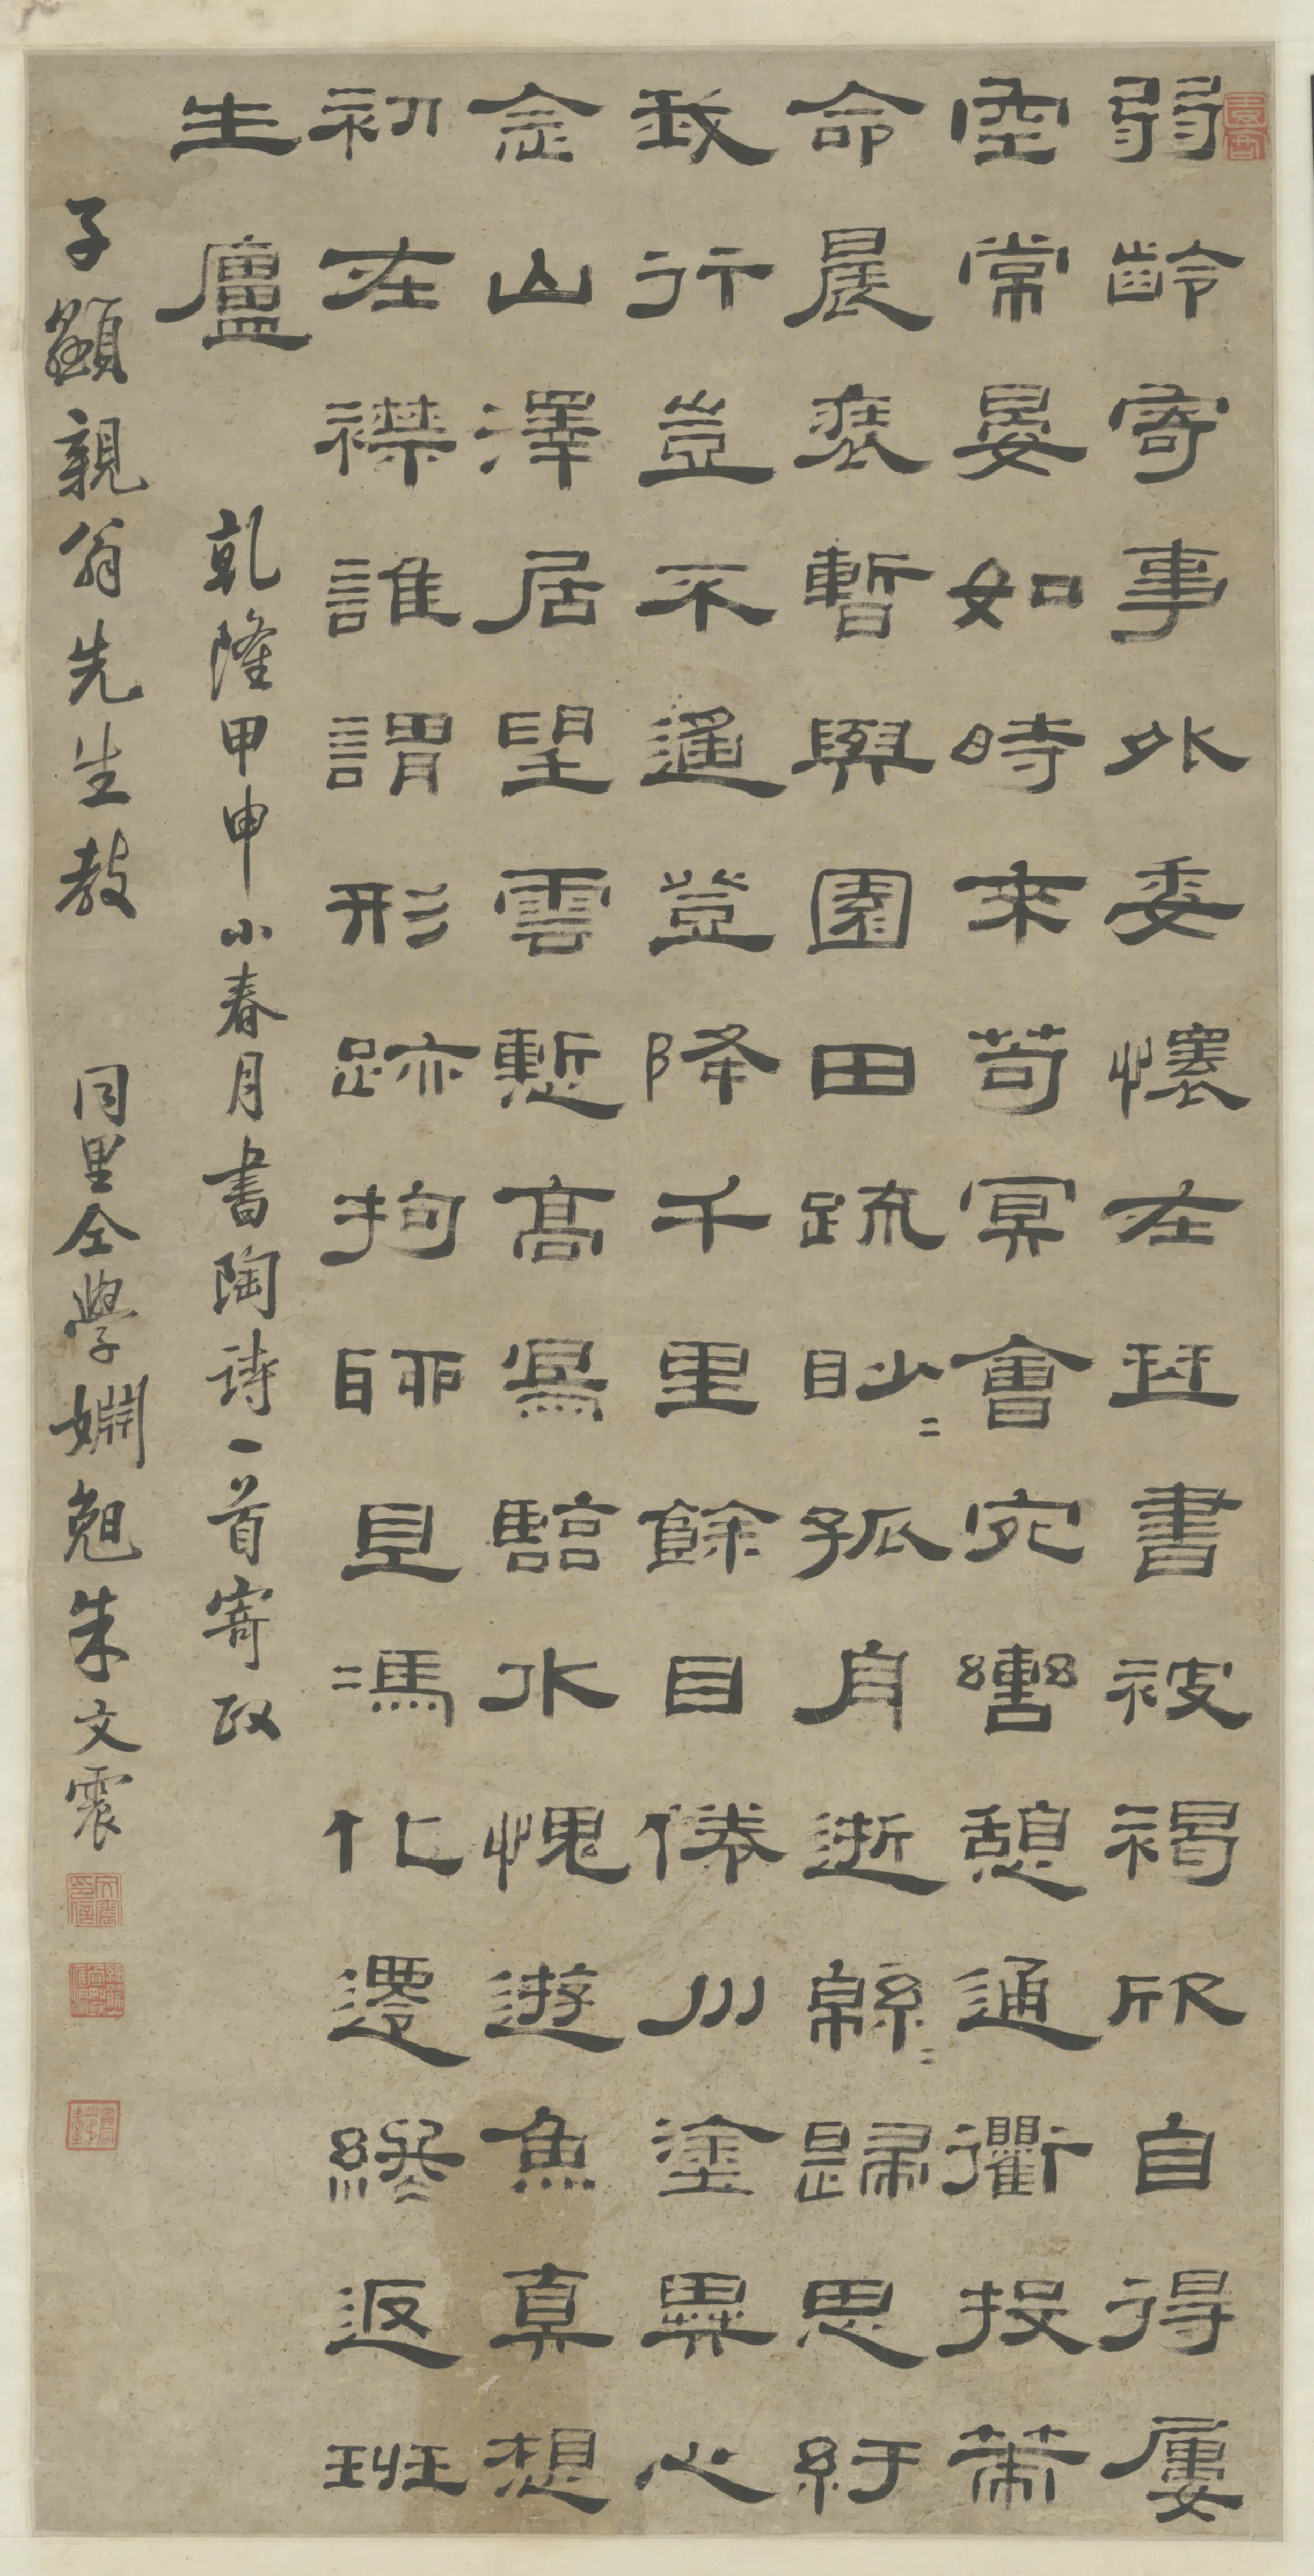 弱齡寄事外委懷在琴書被褐欣自得屢
空常晏如時來苟冥會宛轡憩通衢投策
命晨裝暫與園田疏眇〻孤舟逝緜〻歸思紆
我行豈不遙豈降千里餘目倦川塗異心
念山澤居望雲慙高鳥臨水愧遊魚真想
初在襟誰謂形跡拘聊且馮化遷終返班
生廬
乾隆甲申小春月書陶詩一首寄政
子顓親翁先生教 同里仝學婣弟朱文震